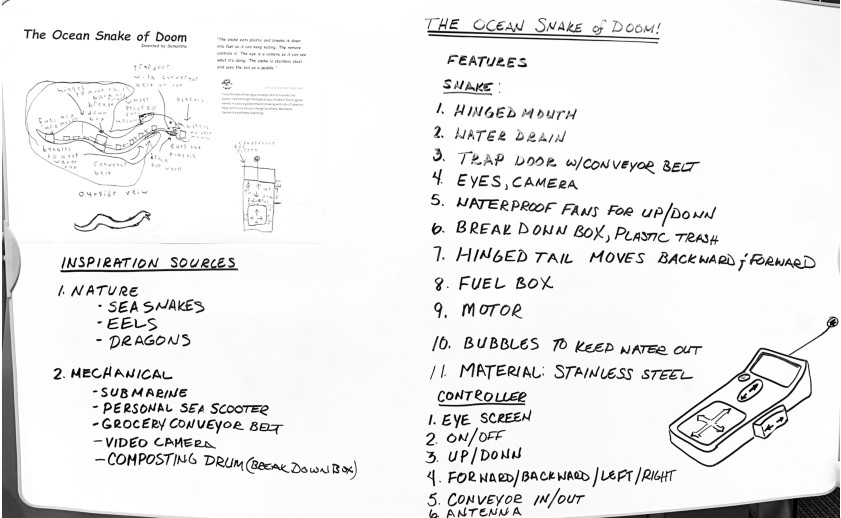 The Ocean Snake of Doom
Invented by Samantha
"The snake eats plastic and breaks it down
into fuel so it can keep eating. The remote
controls it. The eye is a camera so it can see
what it's doing. The snake is stainless steel
and uses the tail as a paddle."
trap door
with conveyor
belt
hinges
break
down
box
conveyor
belt
outside veiw
INSPIRATION SOURCES
1. NATURE
- SEA SNAKES
- EELS
- DRAGONS
2. MECHANICAL
- SUBMARINE
- PERSONAL SEA SCOOTER
- GROCERY CONVEYOR BELT
- VIDEO CAMERA
- COMPOSTING DRUM (BREAK DOWN BOX)
THE OCEAN SNAKE of DOOM!
FEATURES
SNAKE:
1. HINGED MOUTH
2. WATER DRAIN
3. TRAP DOOR W/CONVEYOR BELT
4. EYES, CAMERA
5. WATERPROOF FANS FOR UP/DOWN
6. BREAK DOWN BOX, PLASTIC TRASH
7. HINGED TAIL MOVES BACKWARD & FORWARD
8. FUEL BOX
9. MOTOR
10. BUBBLES TO KEEP WATER OUT
11. MATERIAL: STAINLESS STEEL
CONTROLLER
1. EYE SCREEN
2. ON/OFF
3. UP/DOWN
4. FORWARD/BACKWARD/LEFT/RIGHT
5. CONVEYOR IN/OUT
6. ANTENNA